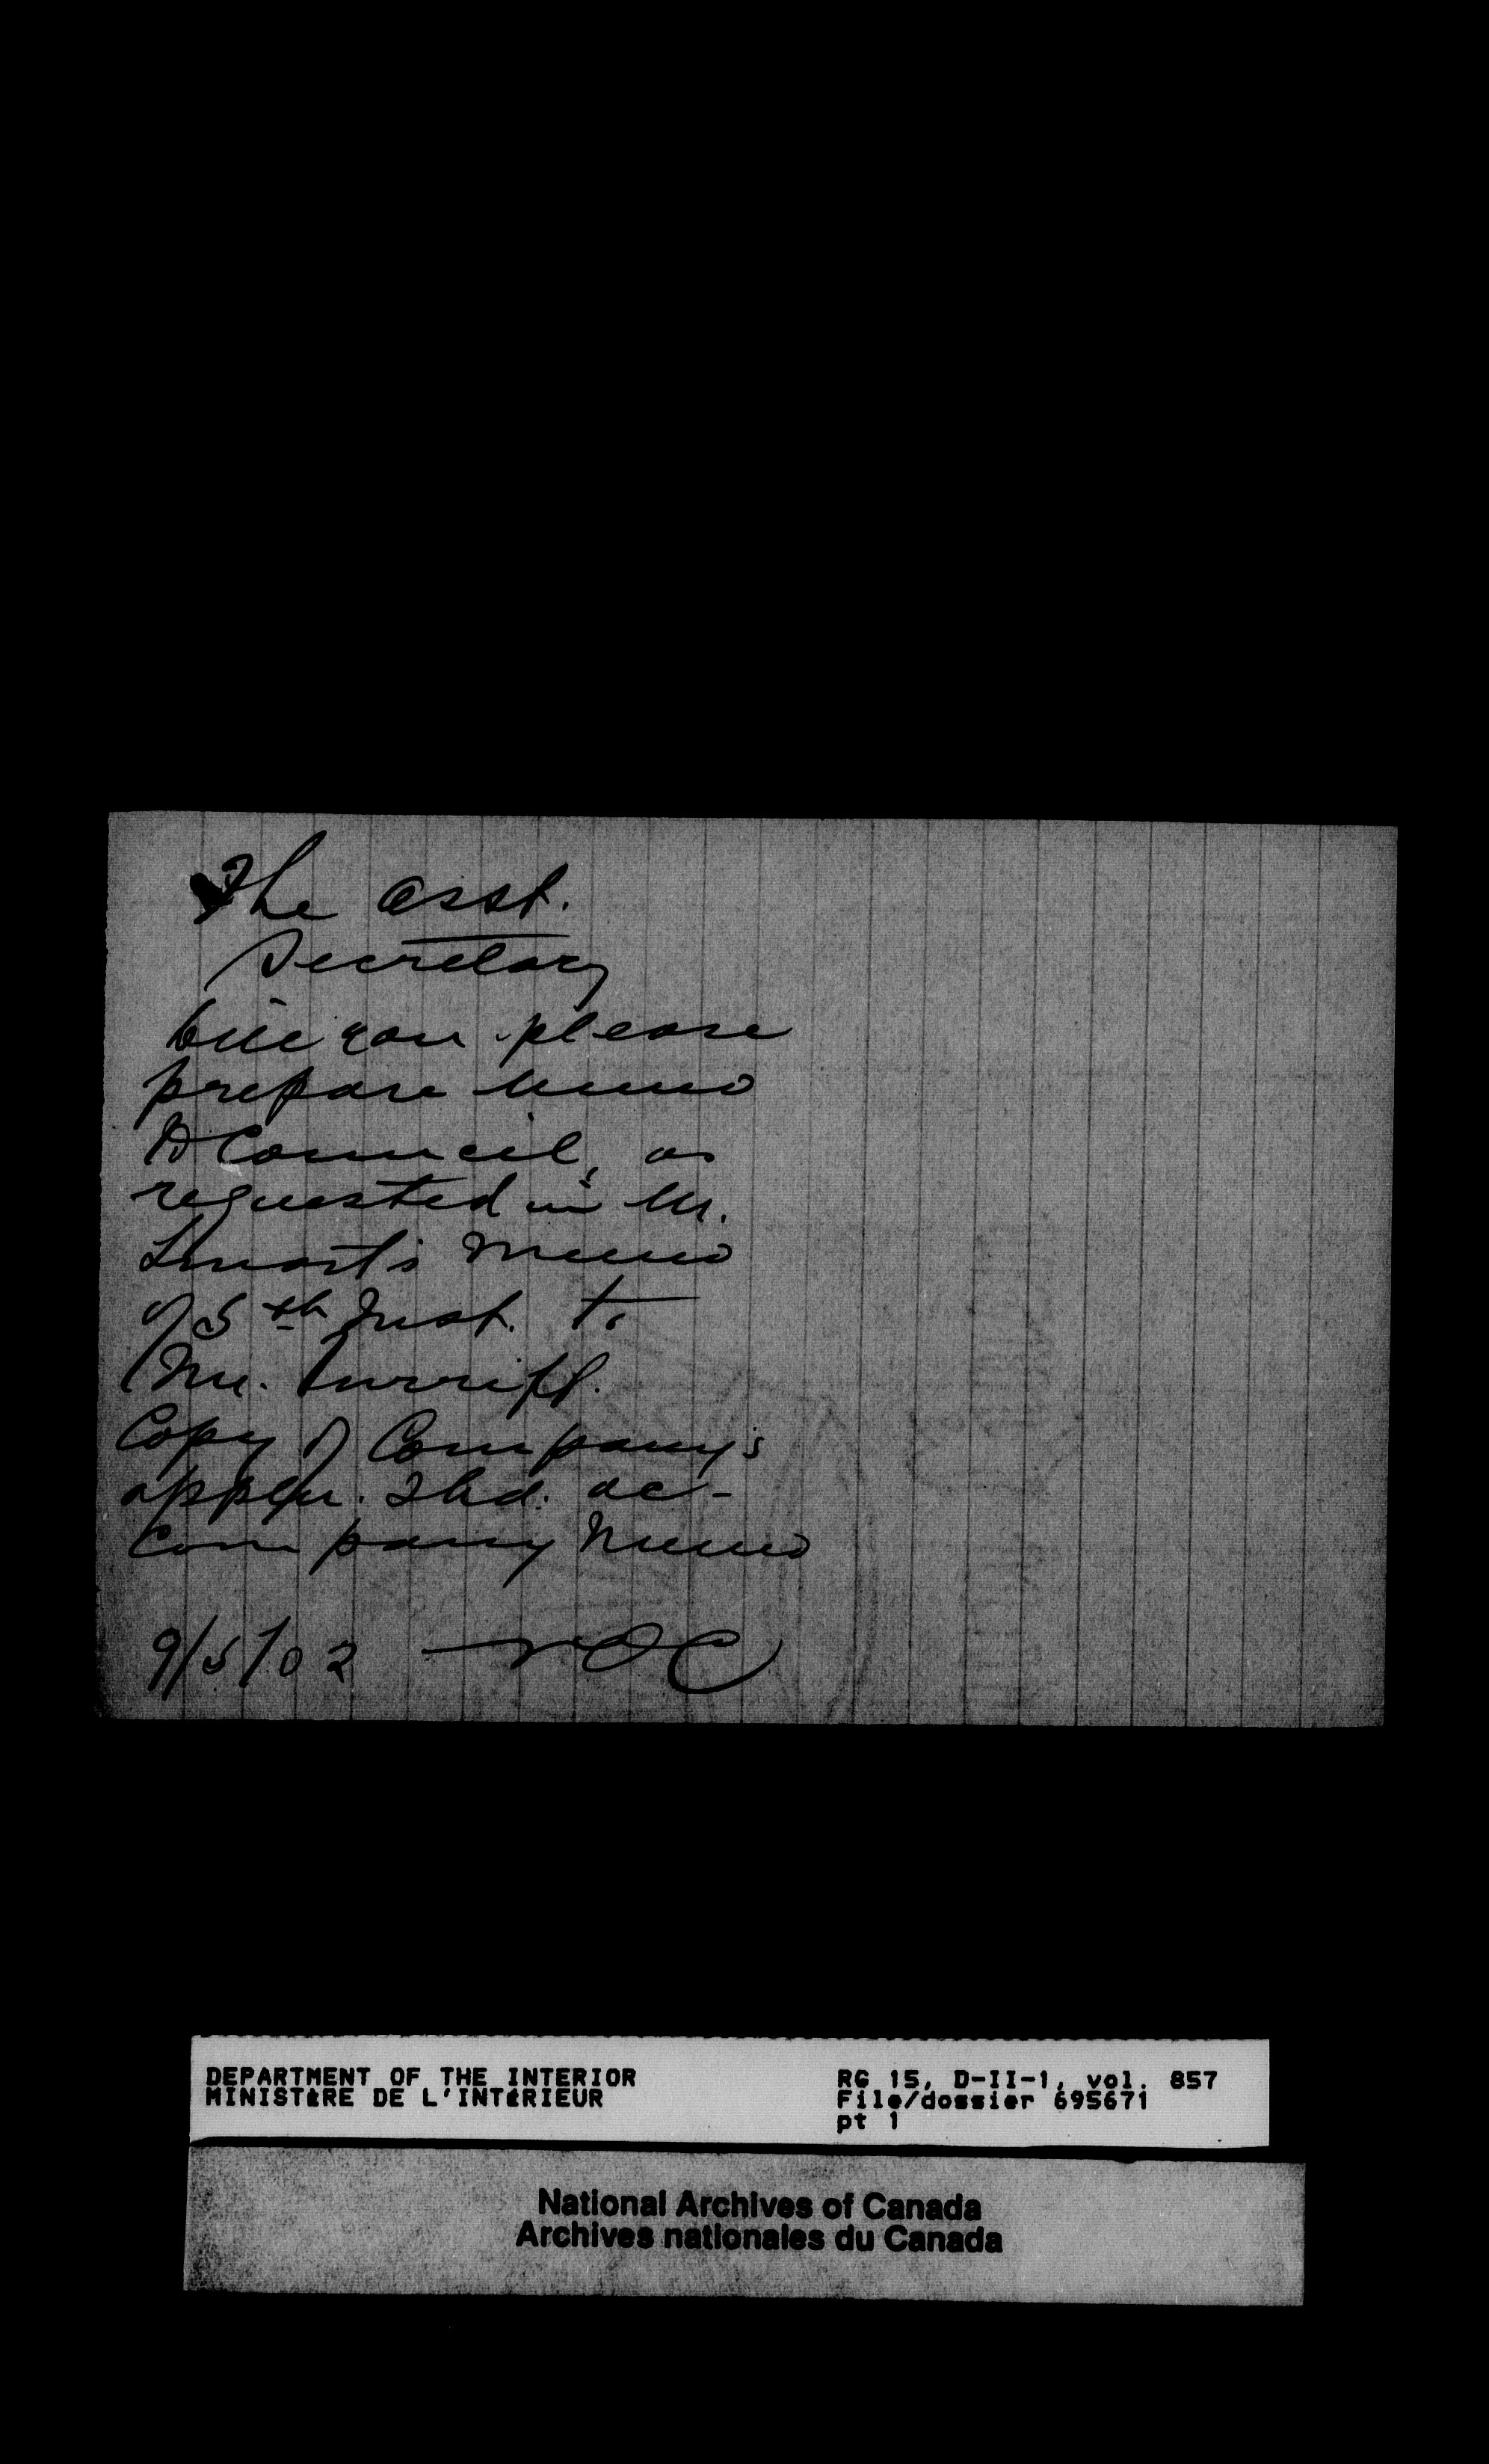 The Asst.
Secretary
Will you please
prepare Memo
to Council, as
requested in Mr.
Smart's Memo
of 5th Inst. to
Mr. Turriff.
Copy of Company's
applcn. Shd. ac-
company Memo
9/5/02
DEPARTMENT OF THE INTERIOR
MINISTÈRE DE L'INTÉRIEUR
RG 15, D-II-1, vol. 857
File/dossier 695671
pt 1
National Archives of Canada
Archives nationales du Canada